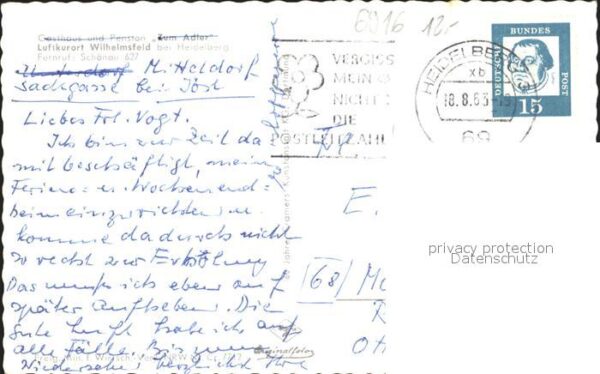 Gasthaus und Pension „Zum Adler"
Luftkurort Wilhelmsfeld bei Heidelberg
Fernruf: Schönau 627
Mitteldorf
Sackgasse bei Jost
Liebes Frl. Vogt.
Ich bin zur Zeit da
mit beschäftigt, mein
Ferien- u. Wochenend-
heim einzurichten u.
komme dadurch nicht
so recht zur Erholung
Das muß ich eben auf
später aufheben. Die
gute Luft habe ich auf
alle Fälle. Bis zum
Wiedersehen herzlichst Ihre
6916 12.-
VERGISS
MEIN
NICHT
DIE
POSTLEITZAHL
HEIDELBERG
xb
18.8.63-19
69
DEUTSCHE BUNDES POST
15
E.
(68)
privacy protection
Datenschutz
Originalfoto